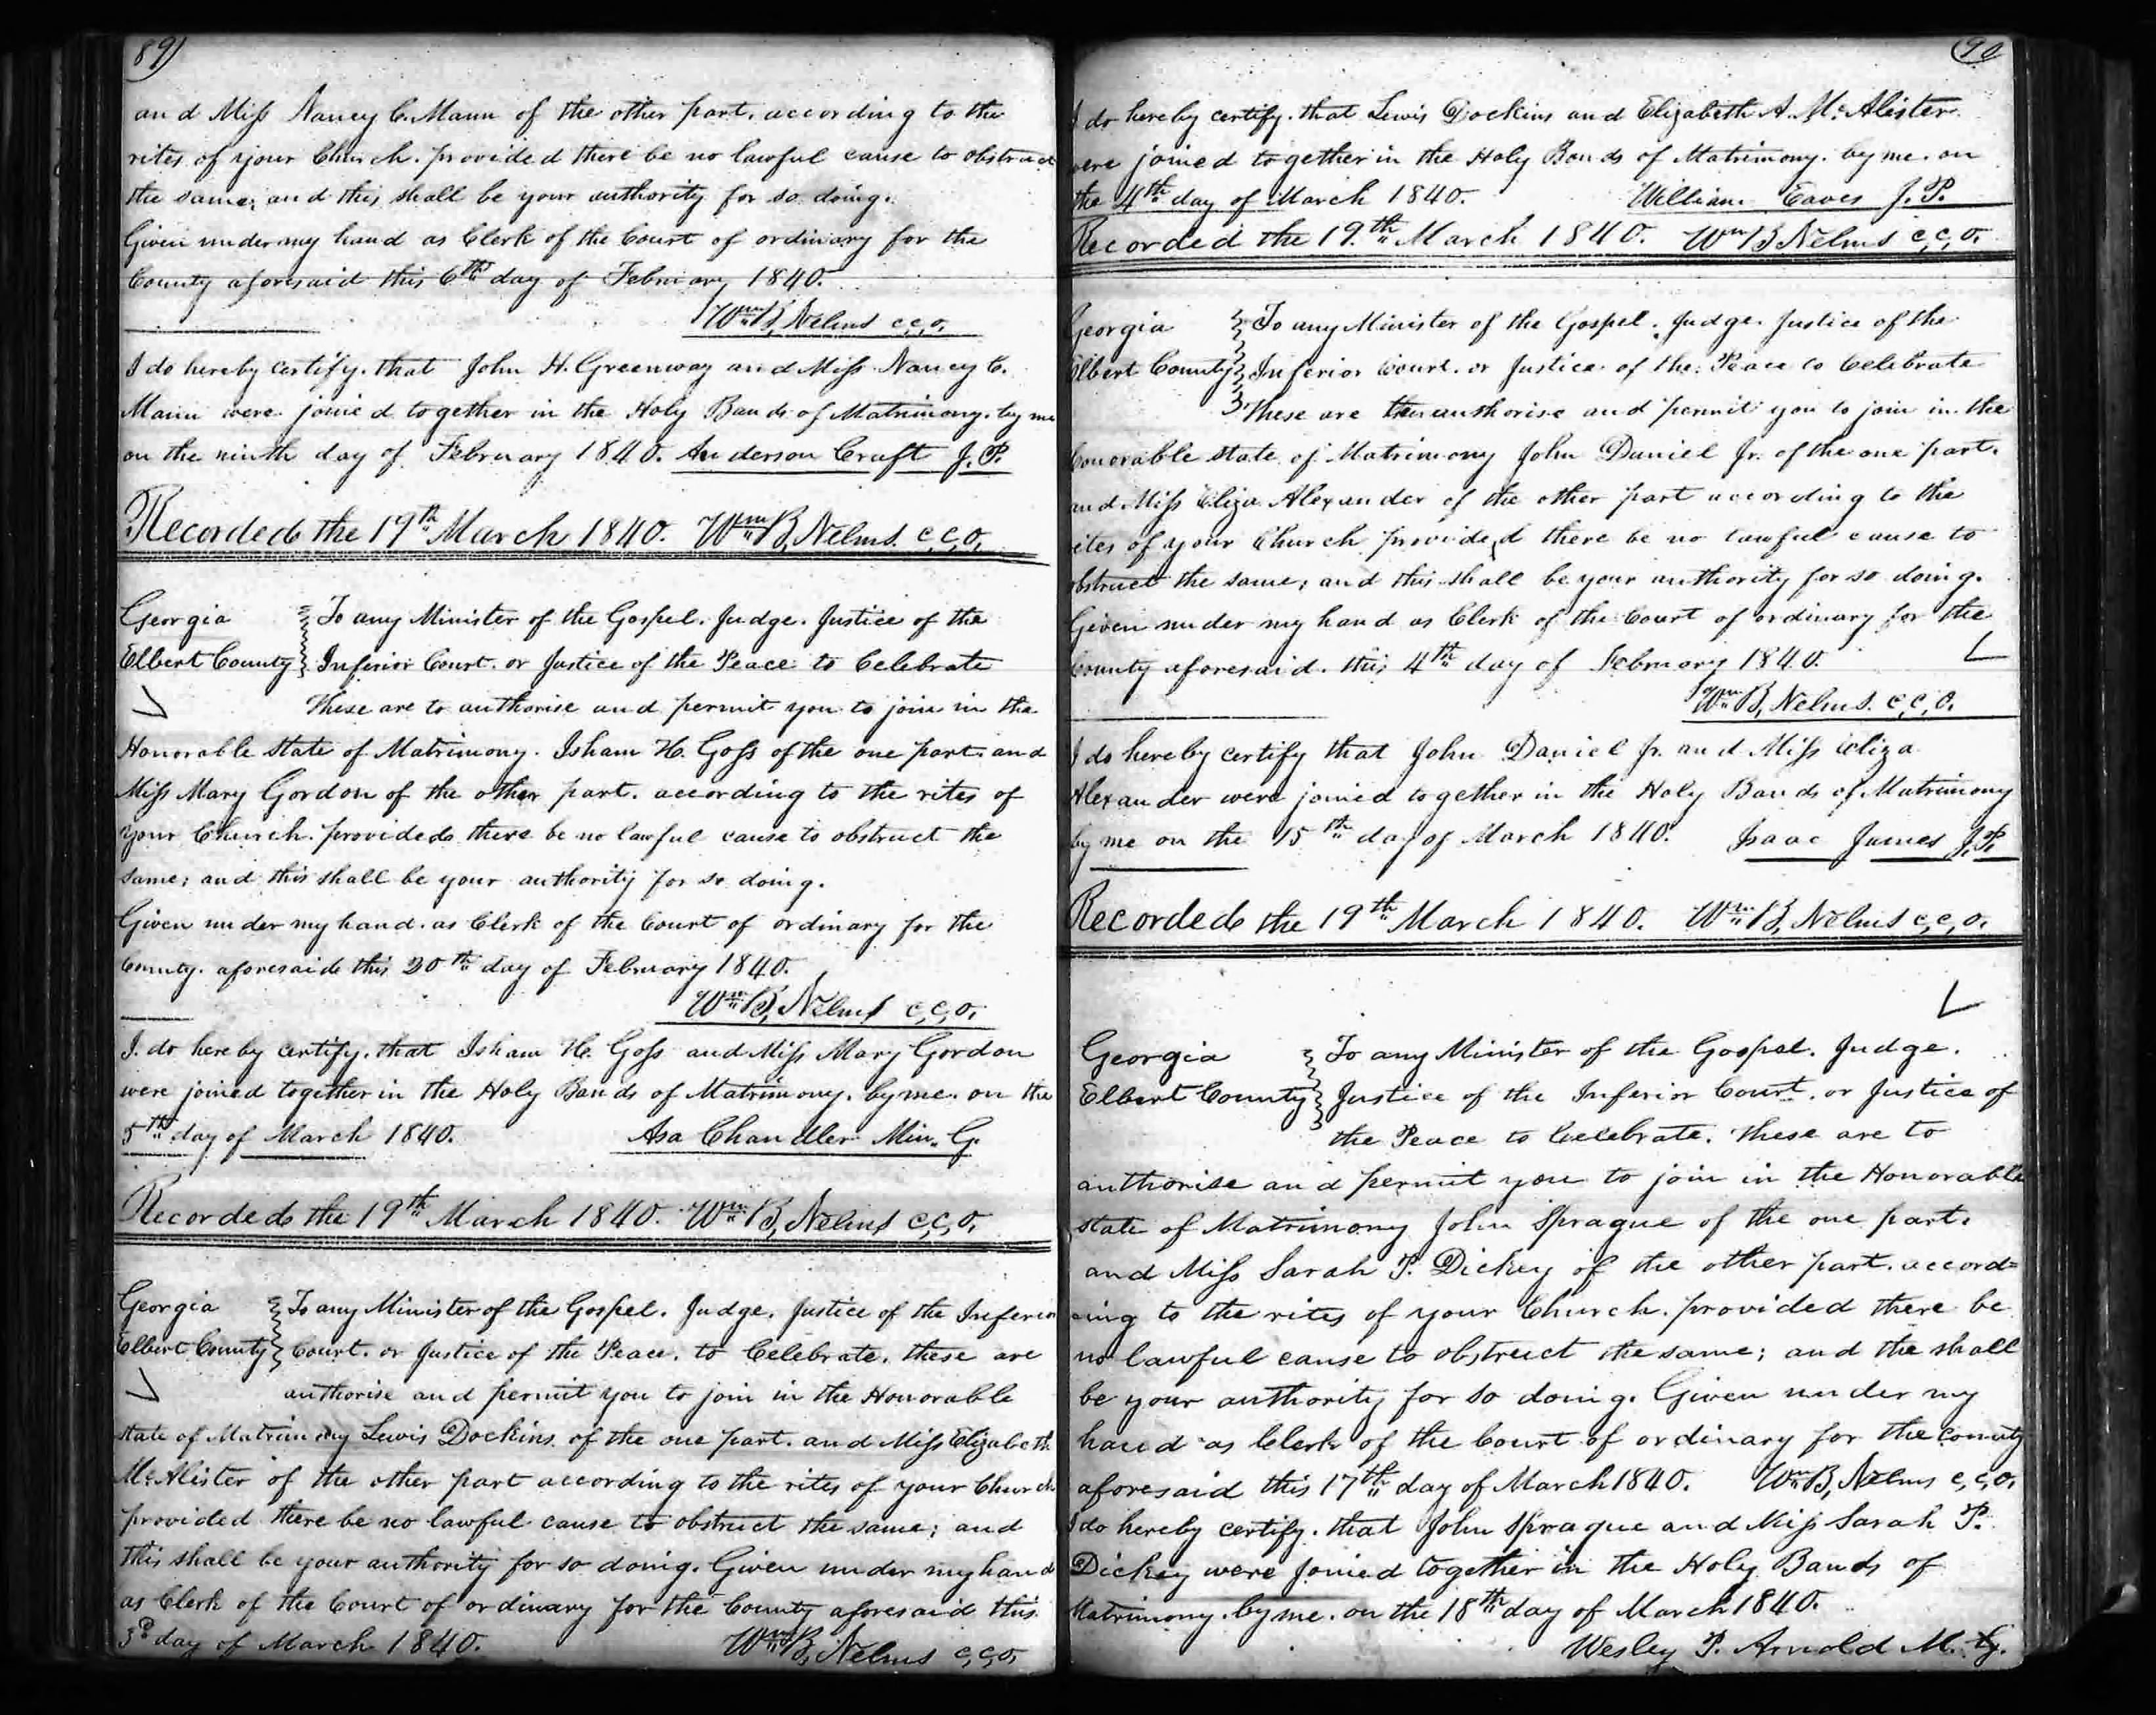 89)
and Miss Nancy C. Mann of the other part. according to the
rites of your Church. provided there be no lawful cause to obstruct
the same; and this shall be your authority for so doing.
Given under my hand as Clerk of the Court of ordinary for the
County aforesaid this 6th day of February 1840.
Wm B, Nelms c,c,o,
I do hereby certify. that John H. Greenway and Miss Nancy C.
Mann were joined together in the Holy Bands of Matrimony. by me
on the ninth day of February 1840. Anderson Craft J. P.
Recorded the 19th March 1840. Wm B, Nelms. c,c,o,
Georgia } To any Minister of the Gospel. Judge. Justice of the
Elbert County } Inferior Court. or Justice of the Peace to Celebrate
These are to authorise and permit you to join in the
Honorable state of Matrimony. Isham H. Goss of the one part. and
Miss Mary Gordon of the other part. according to the rites of
your Church. provided there be no lawful cause to obstruct the
same; and this shall be your authority for so doing.
Given under my hand. as Clerk of the Court of ordinary for the
County. aforesaid this 20th day of February 1840.
Wm B, Nelms c,c,o,
I. do hereby certify. that Isham H. Goss and Miss Mary Gordon
were joined together in the Holy Bands of Matrimony. by me. on the
5th day of March 1840. Asa Chandler Min. G.
Recorded the 19th March 1840. Wm B, Nelms c,c,o,
Georgia } To any Minister of the Gospel. Judge. Justice of the Inferior
Elbert County } Court. or Justice of the Peace. to Celebrate. these are
authorise and permit you to join in the Honorable
state of Matrimony Lewis Dockins of the one part. and Miss Elizabeth
McAlister of the other part according to the rites of your Church
provided there be no lawful cause to obstruct the same; and
this shall be your authority for so doing. Given under my hand
as Clerk of the Court of ordinary for the County aforesaid this
3d day of March 1840. Wm B, Nelms c,c,o,
90
I do hereby certify. that Lewis Dockins and Elizabeth A. McAlister
were joined together in the Holy Bands of Matrimony. by me. on
the 4th day of March 1840. William Eaves J. P.
Recorded the 19th March 1840. Wm B Nelms c,c,o,
Georgia } To any Minister of the Gospel. Judge. Justice of the
Elbert County } Inferior Court. or Justice of the Peace to Celebrate
These are to authorise and permit you to join in the
honorable state of Matrimony John Daniel Jr. of the one part.
and Miss Eliza Alexander of the other part according to the
rites of your Church provided there be no lawful cause to
obstruct the same; and this shall be your authority for so doing.
Given under my hand as Clerk of the Court of ordinary for the
County aforesaid. this 4th day of February 1840.
Wm B, Nelms. c,c,o,
I do hereby certify that John Daniel Jr. and Miss Eliza
Alexander were joined together in the Holy Bands of Matrimony
by me on the 15th day of March 1840. Isaac James J.P.
Recorded the 19th March 1840. Wm B, Nelms c,c,o,
Georgia } To any Minister of the Gospel. Judge.
Elbert County } Justice of the Inferior Court. or Justice of
the Peace to Celebrate. these are to
authorise and permit you to join in the Honorable
state of Matrimony John Sprague of the one part.
and Miss Sarah P. Dickey of the other part. accord=
ing to the rites of your Church. provided there be
no lawful cause to obstruct the same; and the shall
be your authority for so doing. Given under my
hand as Clerk of the Court of ordinary for the county
aforesaid this 17th day of March 1840. Wm B, Nelms c,c,o,
I do hereby certify. that John Sprague and Miss Sarah P.
Dickey were joined together in the Holy Bands of
Matrimony. by me. on the 18th day of March 1840.
Wesley P. Arnold M. G.